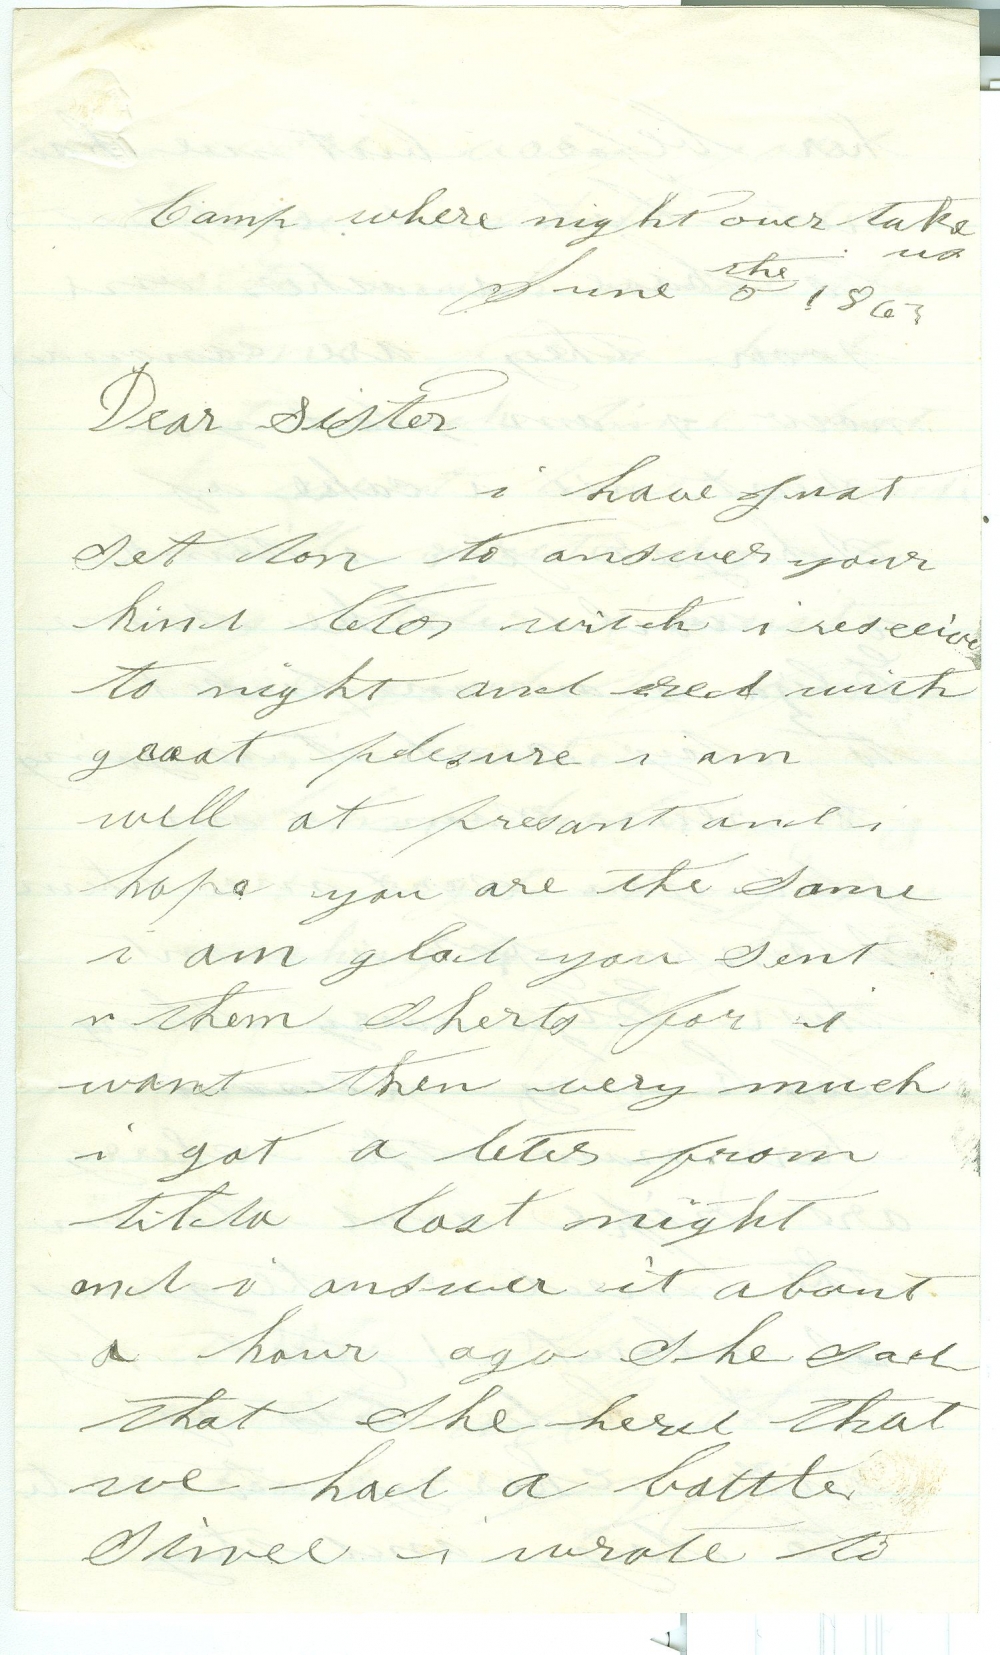 Camp where night over take
us
June the 5 1863
Dear Sister
i have just
set don to answer your
kind leter witch i reseeive
to night and red with
graat plesure i am
well at presant and i
hope you are the same
i am glad you sent
them sherts for i
want then very much
i got a leter from
tilda last night
and i answer it about
a hour ago she sad
that she herd that
we had a battle
sinee i wrote to